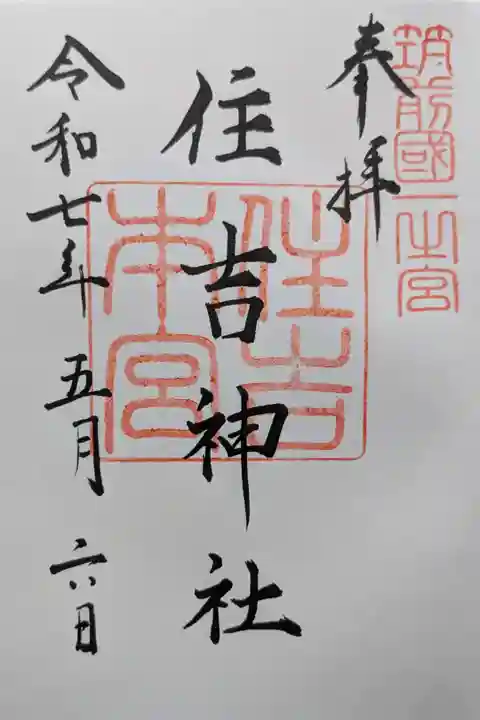 筑前國一之宮
奉拝
住吉神社
住吉本宮
令和七年五月六日